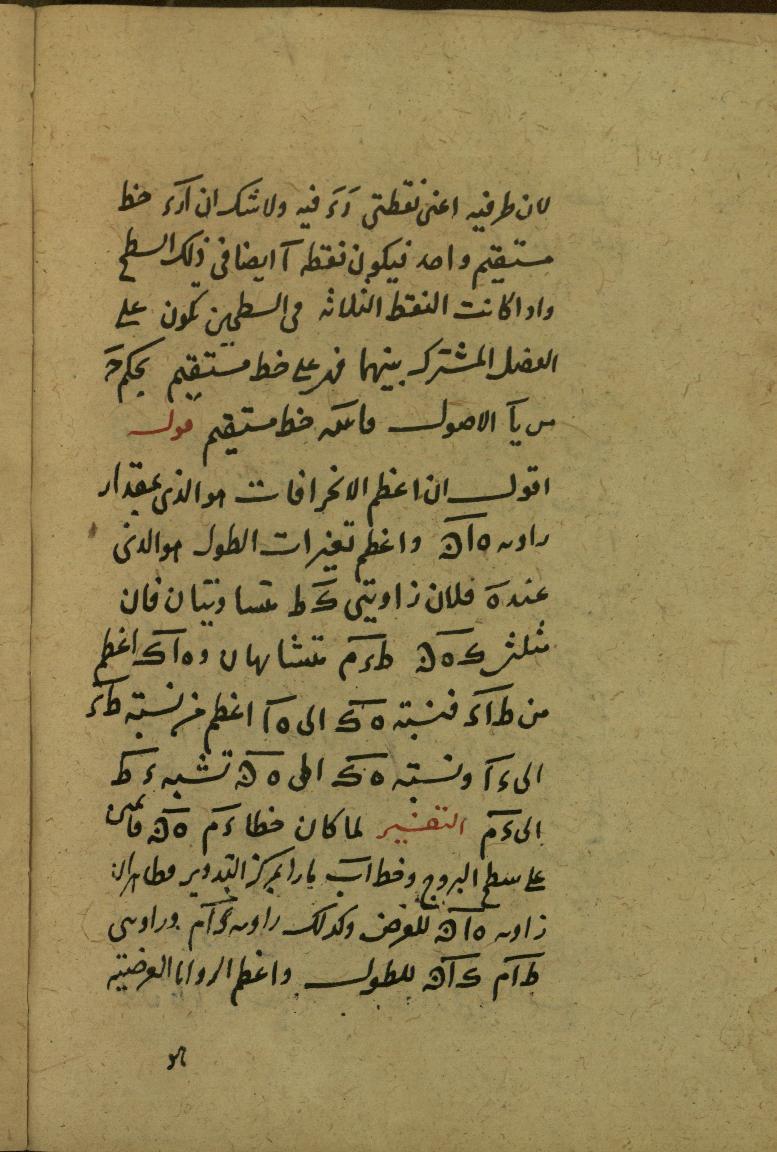 لان طرفيه اعنى نقطتى رَ ءَ فيه ولا شك ان آرَءَ خط
مستقيم واحد فيكون نقطه آ ايضا فى ذلك السطح
واذا كانت النقط الثلاثه فى السطحين تكون على
الفصل المشترك بينهما فهى على خط مستقيم بحكم حَ
من يآ الاصول خط مستقيم قوله
اقول ان اعظم الانحرافات هو الذى بمقدار
زاويه ه ا ن واعظم تغيرات الطول هو الذى
عند ه فلان زاويتى ك ط متساويتان فان
مثلثى ك ه ن ط ء م متشابهان و ه ا ك اعظم
من ط ا ء فنسبته ه ك الى ه ا اعظم من نسبته ط ء
الى ء ا ونسبته ه ك الى ه ن تشبه ء ط
الى ء م التفسير لما كان خطا ء م ه ن قائمين
على سطح البروج وخط ا ب مارا بمركز التدوير فظاهر ان
زاويه ه ا ن للعرض وكذلك زاويه ء ا م وزاويتى
ط ا م ك ا ن للطول واعظم الزوايا العرضيه
هو